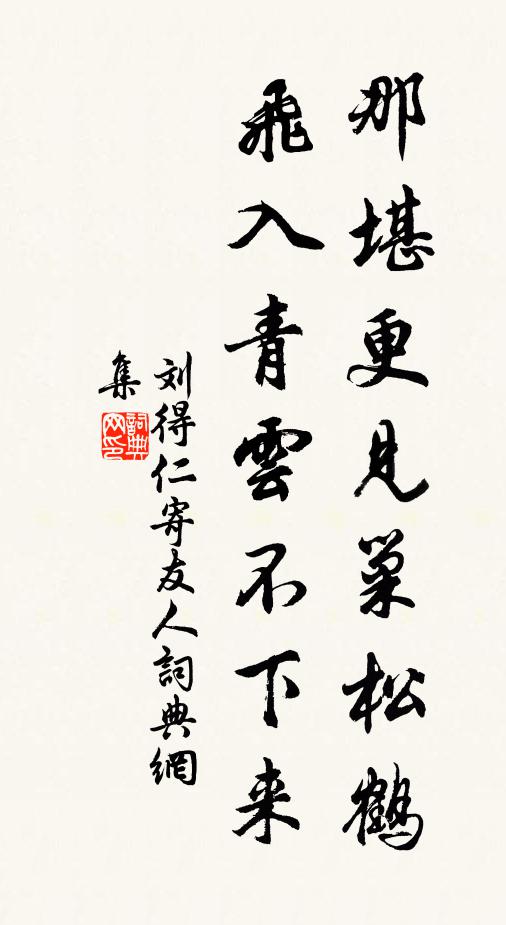 那堪更見巢松鶴
飛入青雲不下来
刘得仁寄友人詞典網
集
詞典网印